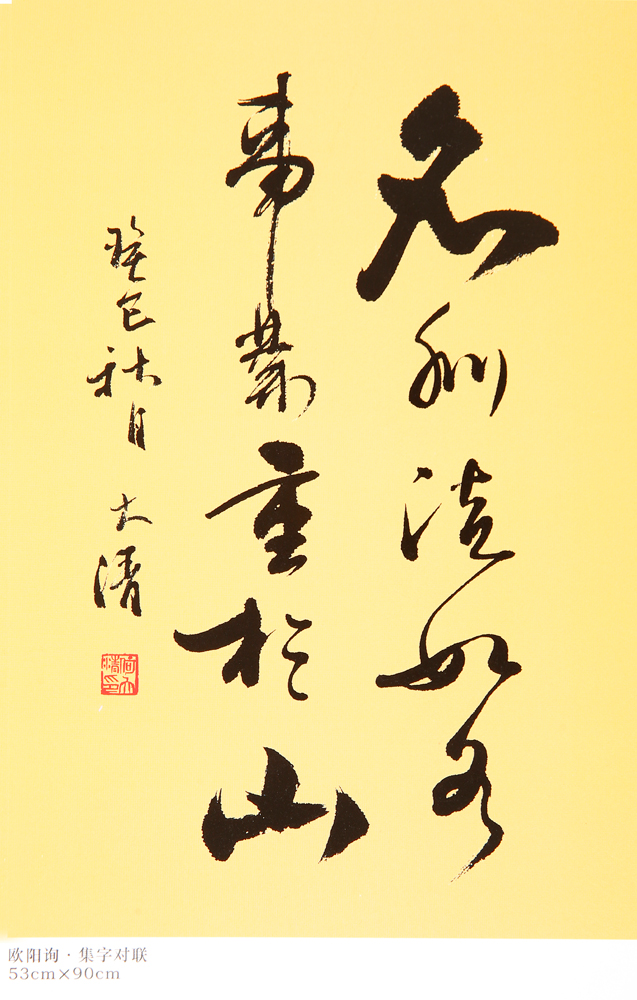 名利淡如水
事業重於山
癸巳秋月 大清
高大清印
欧阳询·集字对联
53cm×90cm